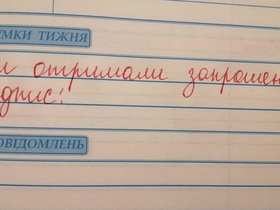 МКИ ТИЖНЯ
и отримали запрошен
дпис:
ОВІДОМЛЕНЬ